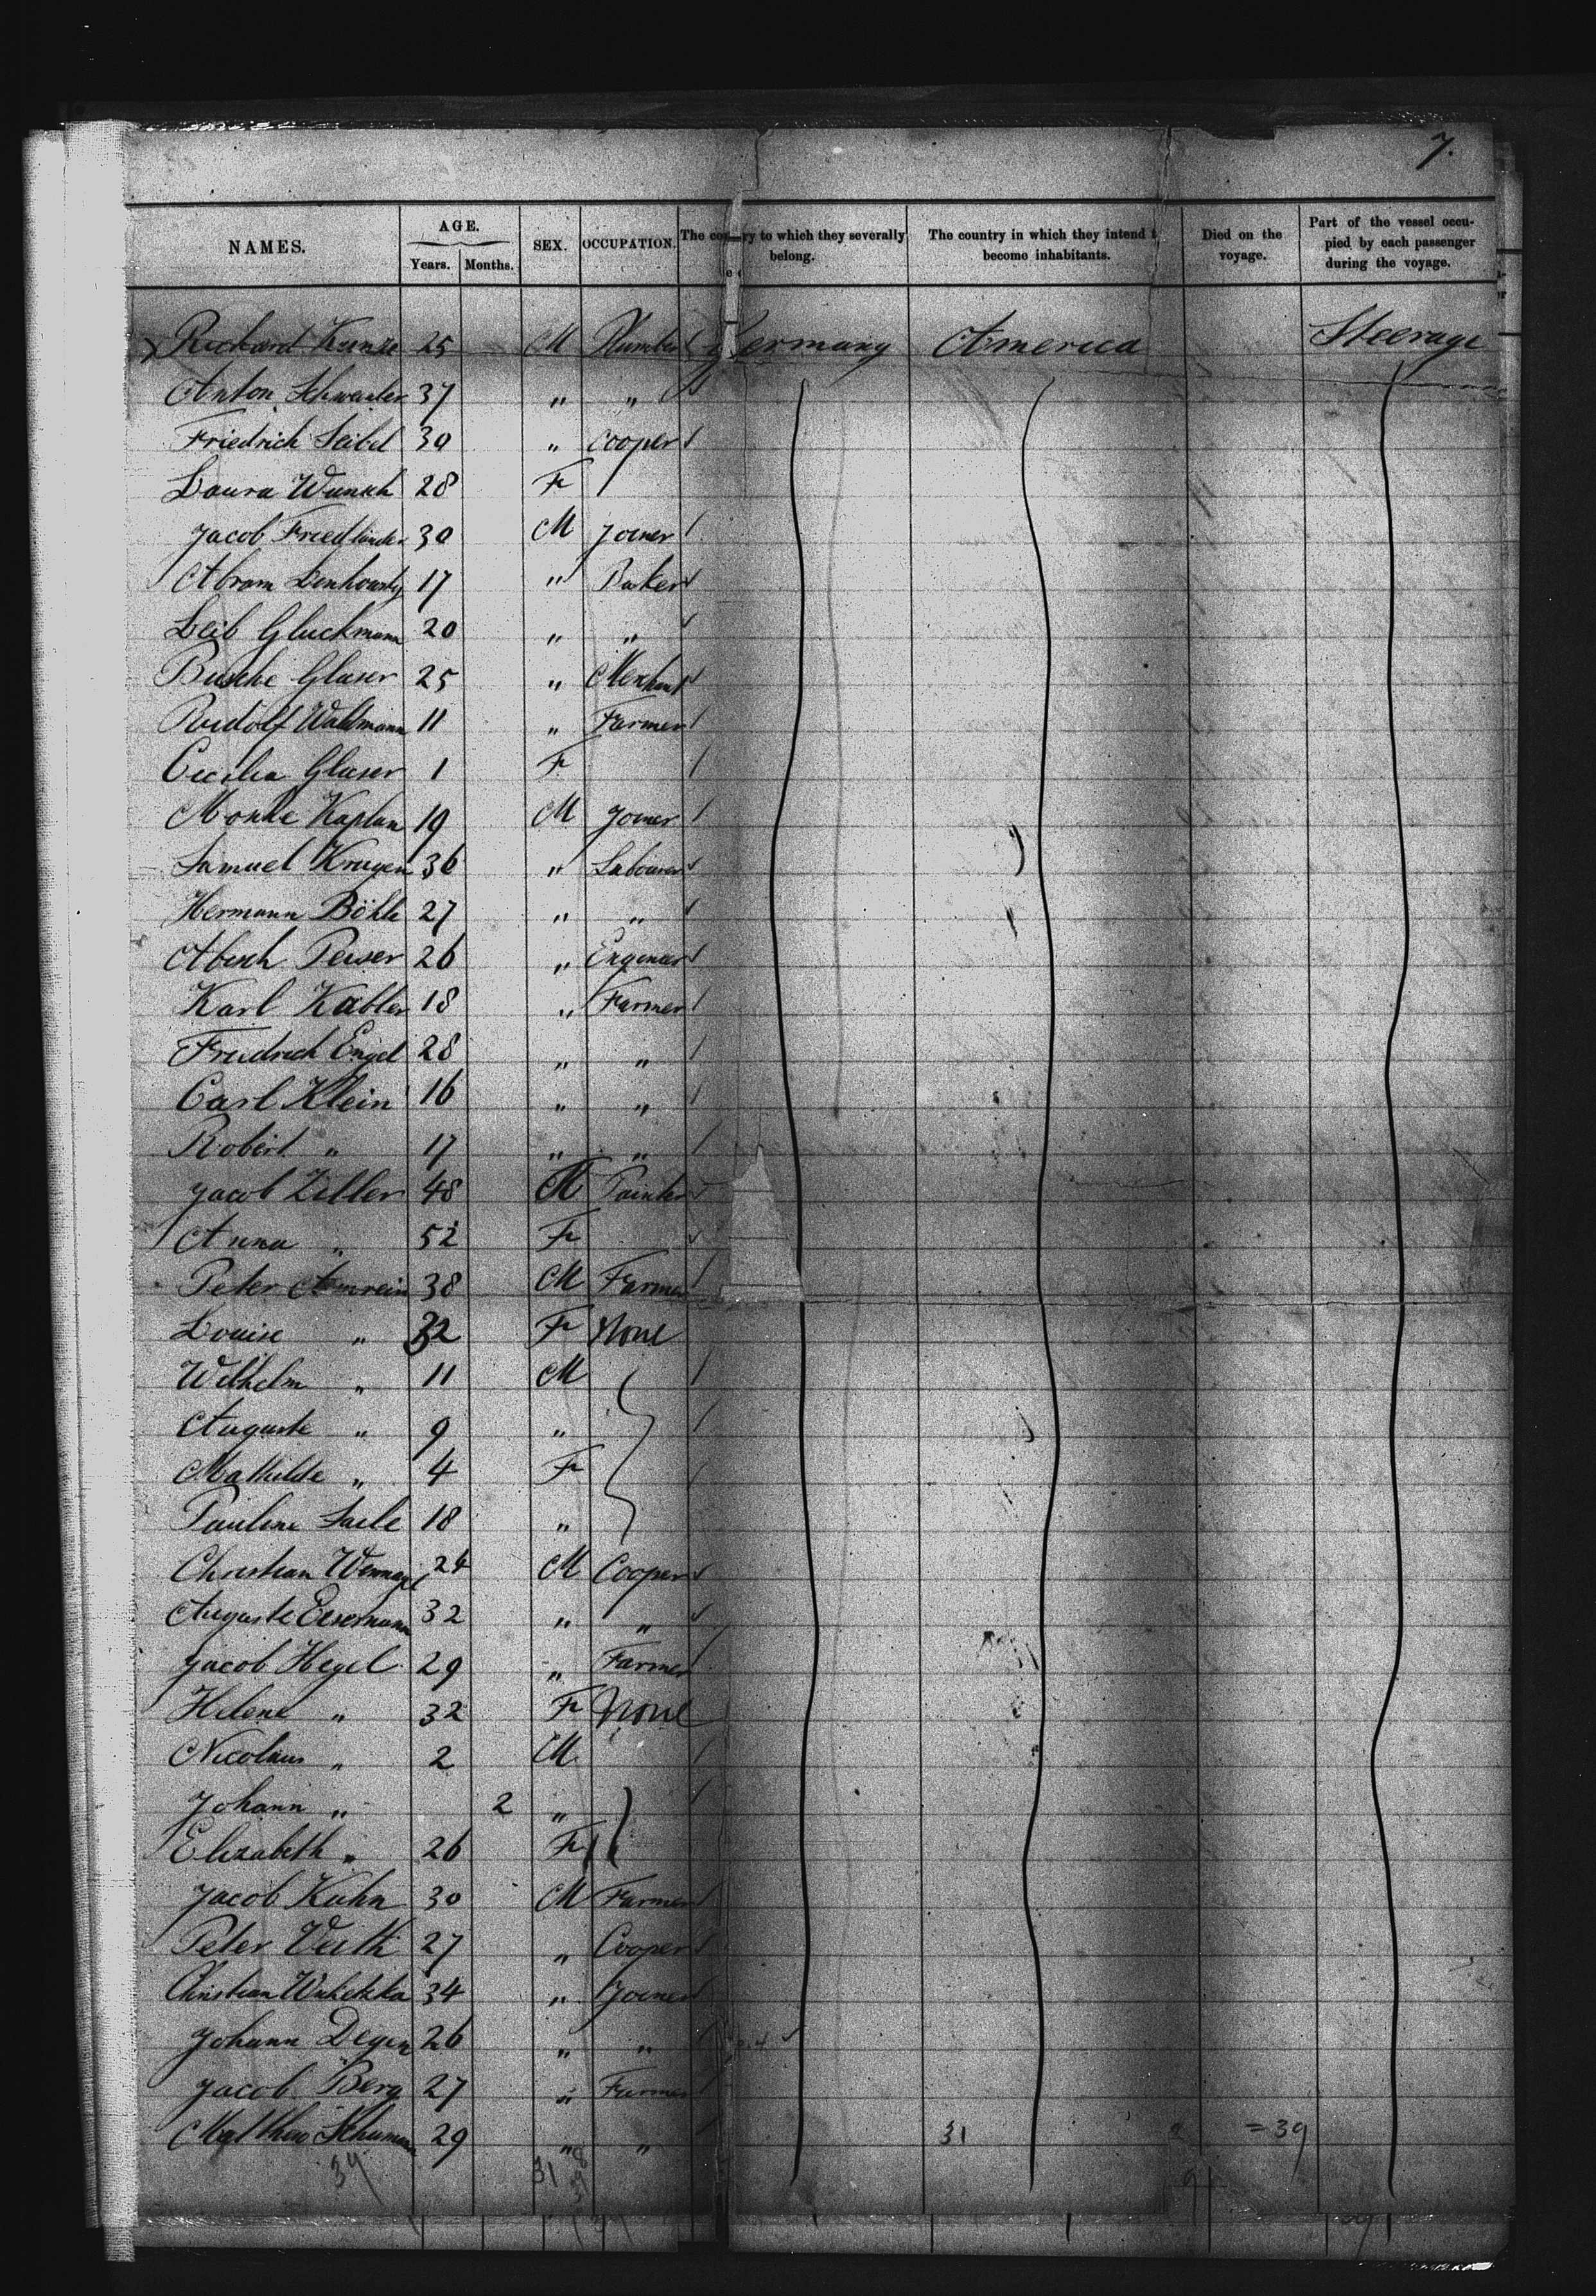 7.
NAMES. AGE. Years. Months. SEX. OCCUPATION. The country to which they severally belong. The country in which they intend t become inhabitants. Died on the voyage. Part of the vessel occupied by each passenger during the voyage.
Richard Kunze 25 M Plumber Germany America Steerage
Anton 37 " "
Friedrich Seibel 30 " Cooper
Laura Wunsch 28 F
Jacob Friedländer 30 M Joiner
Abram 17 " Baker
Leib Gluckmann 20 " "
Glaser 25 " Merchant
Rudolf Waldmann 11 " Farmer
Cecilia Glaser 1 F
Kaplan 19 M Joiner
Samuel 36 " Labourer
Hermann Böhle 27 " "
Abisch Peiser 26 " Engineer
Karl Kabler 18 " Farmer
Friedrich Engel 28 " "
Carl Klein 16 " "
Robert " 17 " "
Jacob Ziller 48 M Painter
Anna " 52 F
Peter Amrein 38 M Farmer
Louise " 32 F None
Wilhelm " 11 M
Auguste " 9 "
Mathilde " 4 F
Pauline 18 "
Christian 24 M Cooper
Auguste Eisemann 32 " "
Jacob Hegel 29 " Farmer
Helene " 32 F None
Nicolaus " 2 M
Johann " 2 "
Elizabeth " 26 F
Jacob Kuhn 30 M Farmer
Peter Veith 27 " Cooper
Christian 34 " Joiner
Johann Degen 26 " "
Jacob Berg 27 " Farmer
Matthew Schumann 29 " " 31 = 39
39 31 8